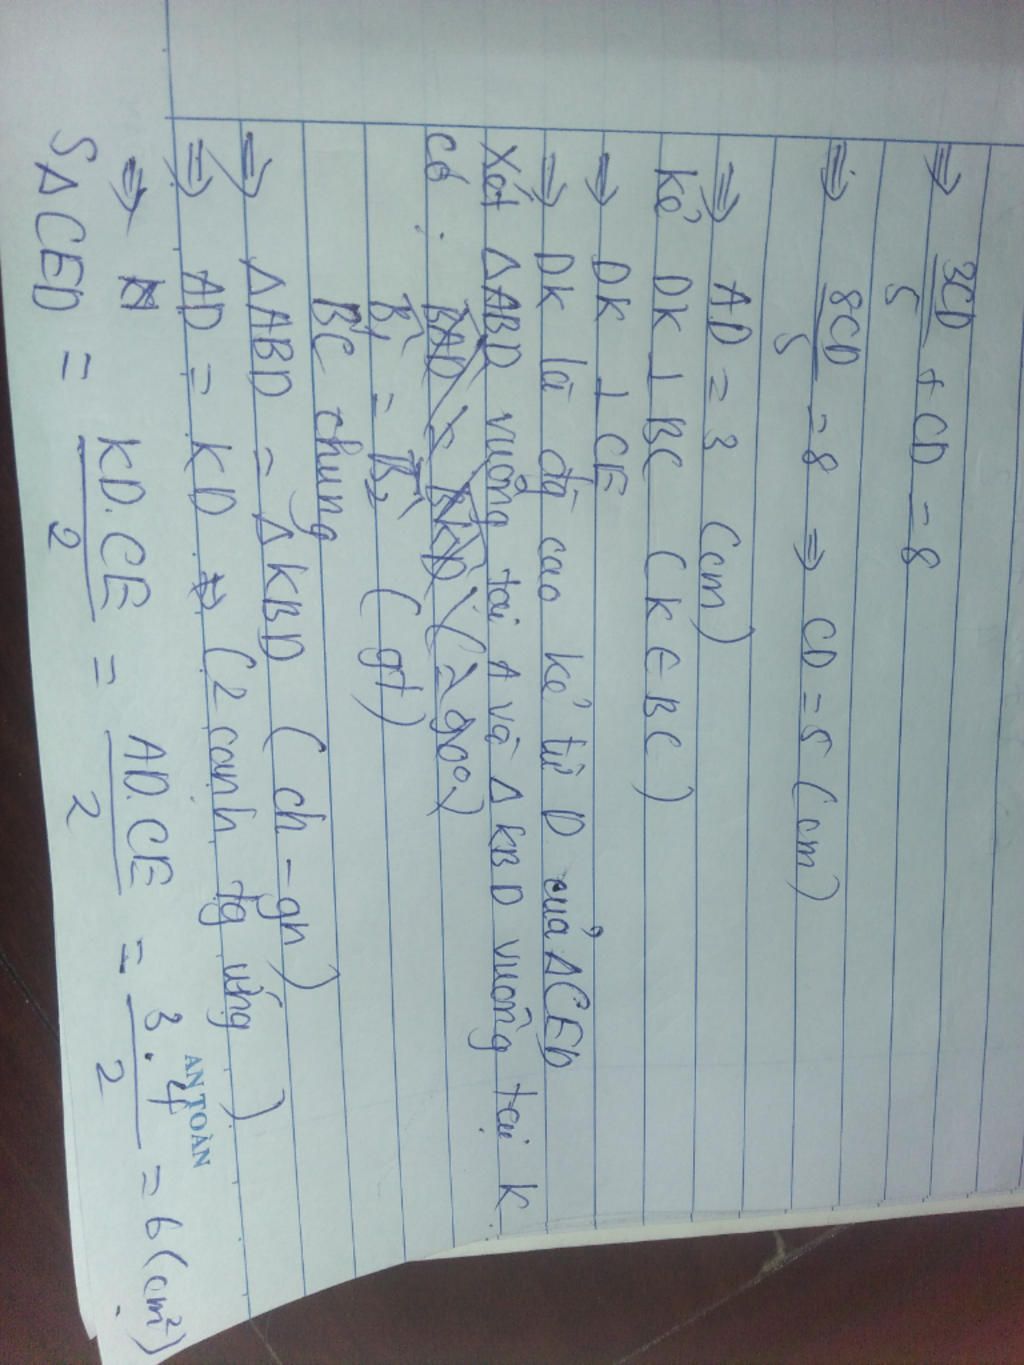 ⇒ 3CD/5 + CD = 8
⇒ 8CD/5 = 8 ⇒ CD = 5 (cm)
⇒ AD = 3 (cm)
Kẻ DK ⊥ BC (K ∈ BC)
⇒ DK ⊥ CE
⇒ DK là đg cao kẻ từ D của ΔCED
Xét ΔABD vuông tại A và ΔKBD vuông tại K
có: BAD = BKD (= 90°)
B̂₁ = B̂₂ (gt)
BC chung
⇒ ΔABD = ΔKBD (ch - gn)
⇒ AD = KD (2 cạnh tg ứng)
⇒
SΔCED = KD.CE/2 = AD.CE/2 = 3.4/2 = 6 (cm²)
AN TOÀN